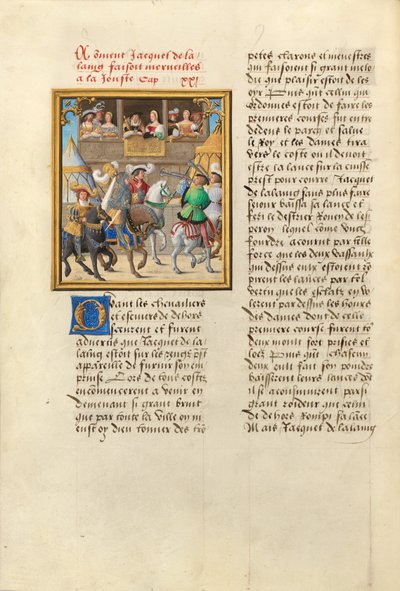 Coment Jacquet de la
laing faisoit merveilles
a la Jouste Cap XXI
Quant les chevaliers
et escuiers de dehors
sceurent et furent
advertis que Jacquet de la
laing estoit sur les rengz
appareille de furnir son em
prinse Lors de tous costez
encommencerent a venir en
demenant si grant bruit
que par toute la ville on ni
eust oy dieu tonner des tro
petes clarons et menestrez
qui faisoient si grant melo
die que plaisir estoit de les
oyr Puis que cellui qui
ordonnes estoit de faire les
premieres courses fut entre
dedens le parcq et salue
le Roy et les dames tira
vers le coste ou il devoit
estre la lance sur la cuisse
prest pour courre Jacquet
de lalaing sans plus faire
sejour baissa sa lance et
feri le destrier de
peron lequel come
fouldre acourut par telle
force que les deux vassaulx
qui dessus eulx estoient ro
pirent les lances par tel
vertu que les esclatz en vo
lerent par dessus les hours
des dames dont de celle
premiere course furent to
deux moult fort prisiez et
loez Puis que chascun
deux eult fait son poindre
baisserent leurs lances dot
il se aconsuivirent par si
grant roideur que celui
de dehors rompi sa lace
Mais Jacquet de lalaing